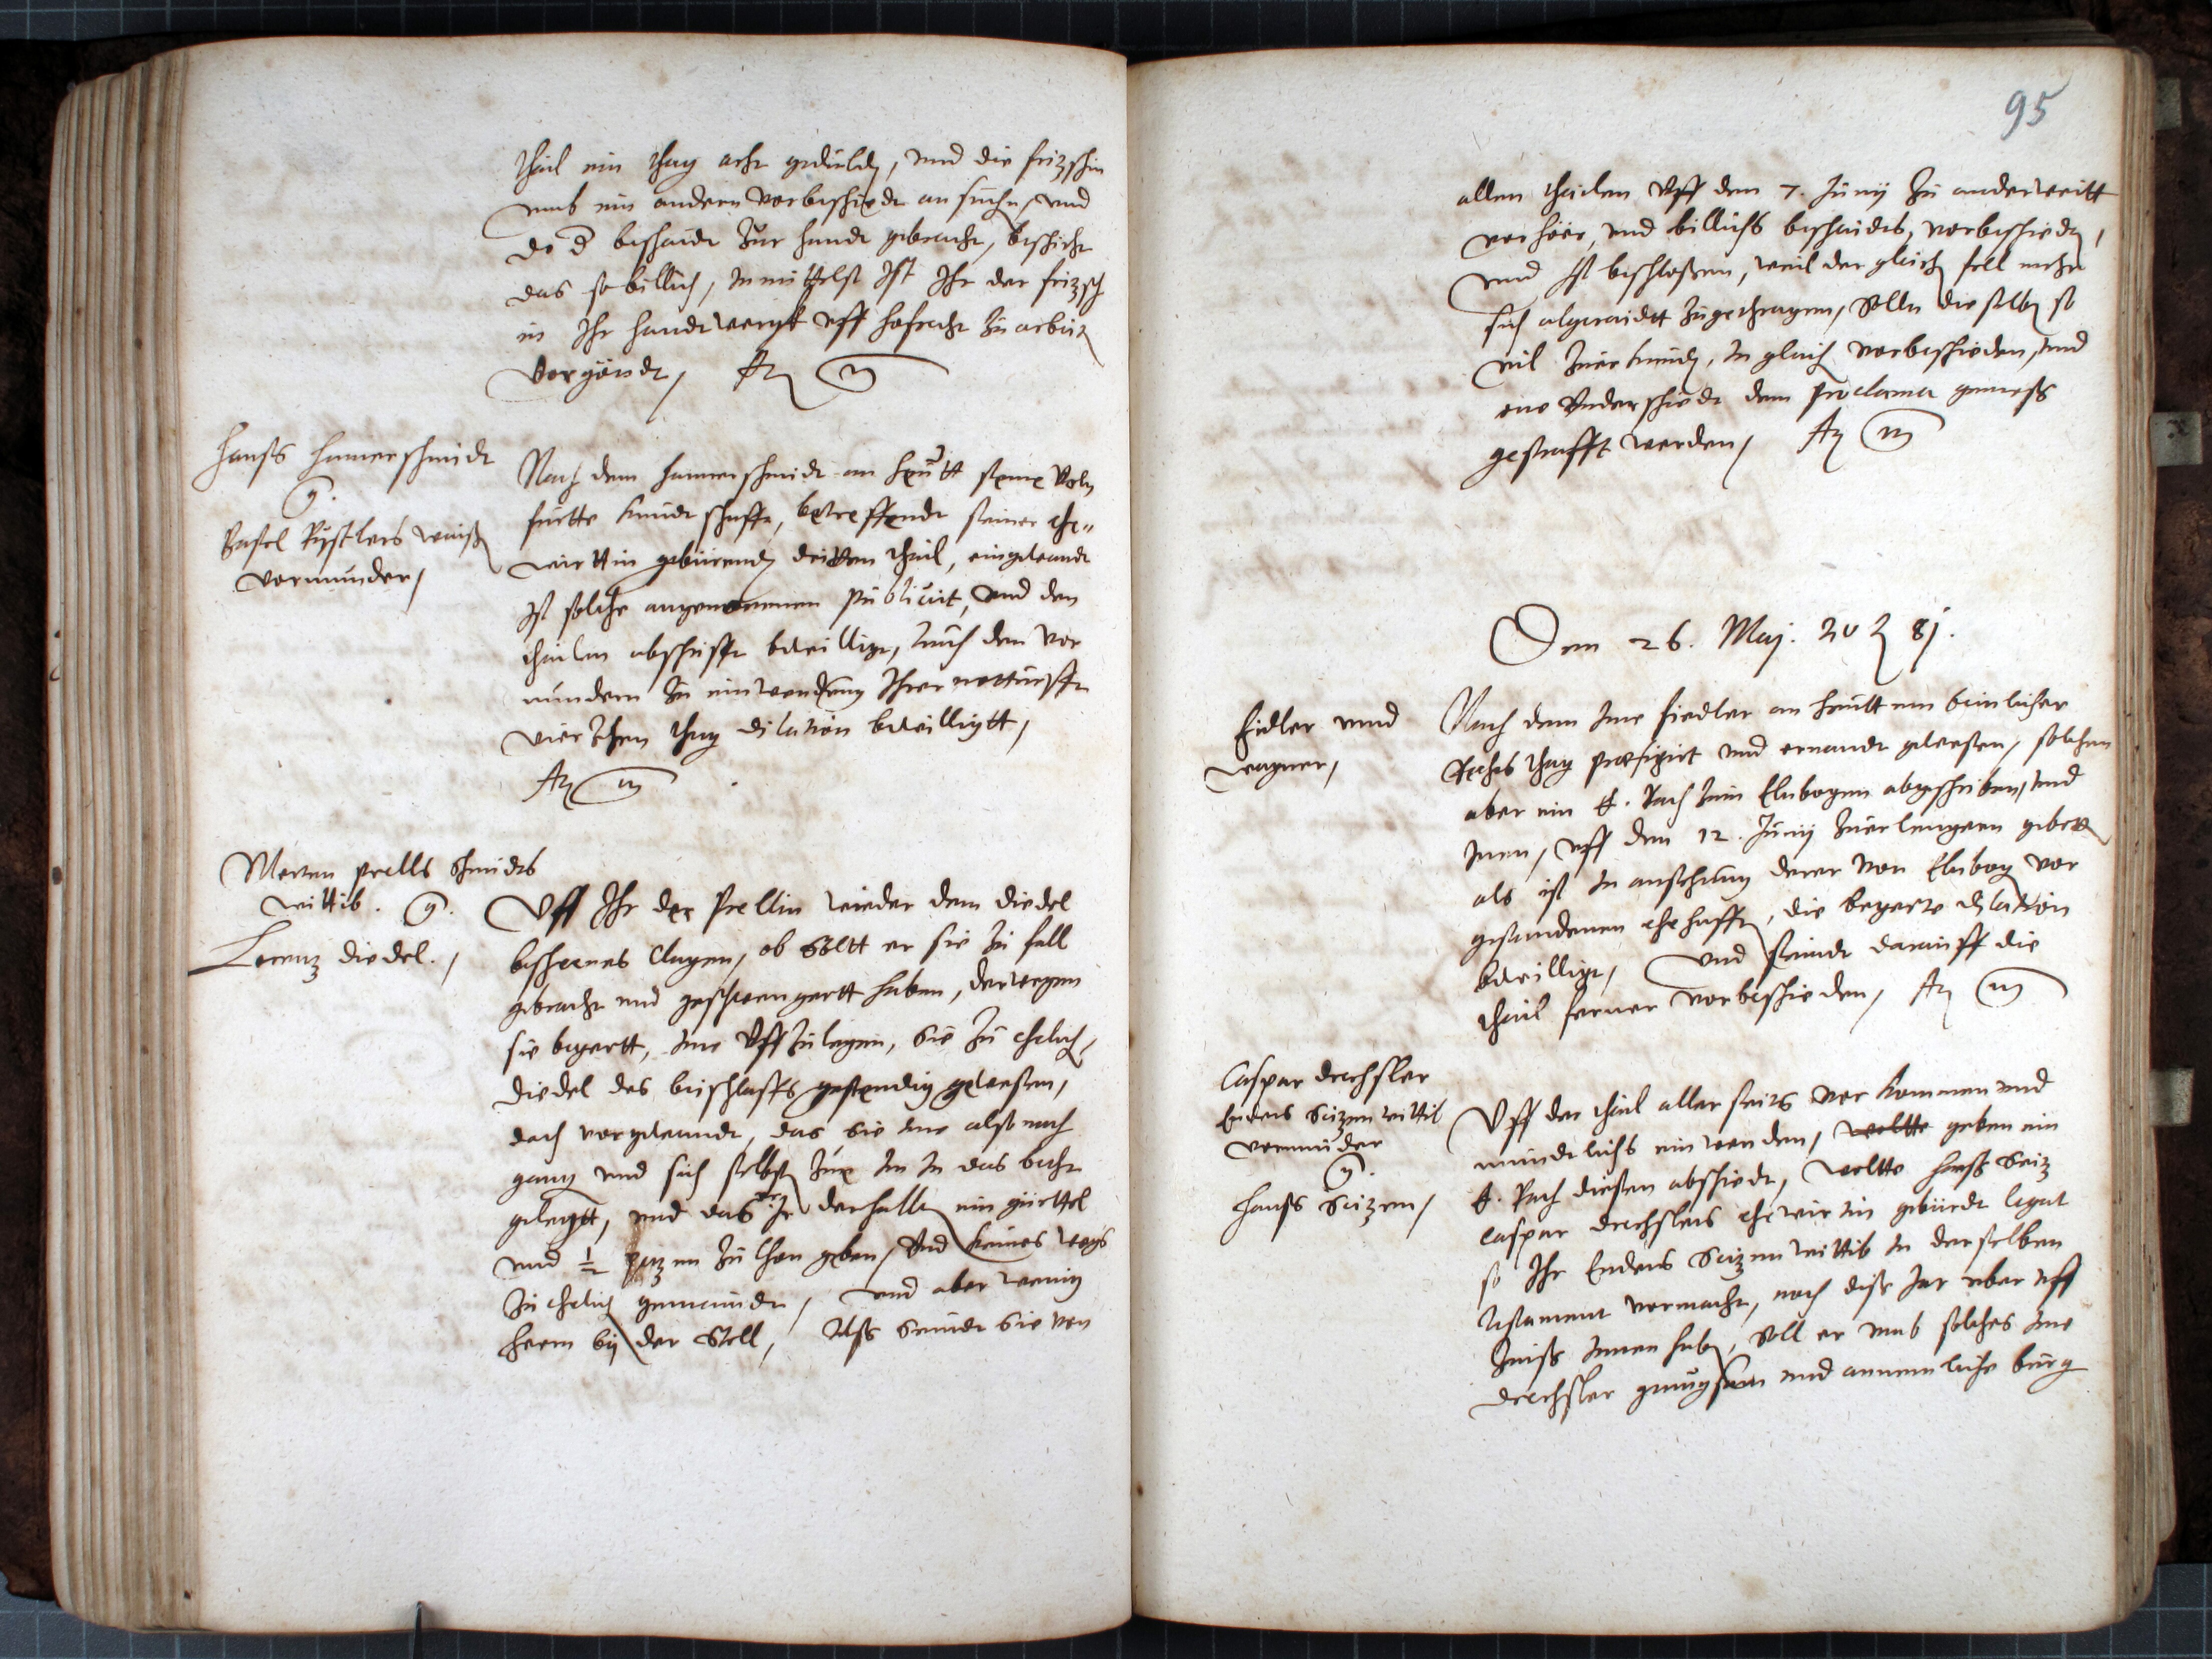 thail ein thag acht geduldn, und die fritzschin
umb ein andern vorbschiedt ansuchn, und
do d beschaidt zur handt gebracht, beschicht
das so billich, Inmittelst Ist Ihr der fritzsch
in Ihr handtwergk uff hofrecht zu arbeitn
Vorgöndt,
Hanß Hamerschmidt
Vormunder,
Nach dem Hamerschmidt an heutt seine Voln
furtte kundtschafft, betreffendt seiner ehe„
wirttin gebürendn dritten thail, eingewandt
Ist solche angenommen publicirt, und den
thailen abschrifft bewilligt, auch den vor
mundern zu einwendung Ihrer notturfft
vierzehen thag dilation bewilligtt,
Merten Prells Schmidts
wittib.
Lorenz Diedel.
Uff Ihr der Prellin wieder dem Diedel
beschehenes Clagen, ob Soltt er sie zu fall
gebracht und geschwengertt haben, derwegen
sie begertt, Ime Uffzulegen, Sie zu ehelichn,
Diedel des beischlaffs gestendig gewesen,
doch vorgewandt, das Sie Ime also nach
gang und sich selbst zue Im In das beth
gelegtt, und das er Ir derhalben ein gürttel
und ½ zu lhon geben, Und keines wegs
zu ehelichn gemaindt, und aber wenig
herrn bey der Stell, Alß Seindt Sie von
95
allen thailen Uff den 7. Junij zu anderweitt
verhöer, und billichs bescheidts, vorbschiedn,
und Ist beschloßen, weil der gleichn fell mehr
sich algeraidtt zugethragen, Solln die selbn so
vil zuerkundn, In gleich vorbschieden, und
one Underschiedt dem proclama gemeß
gestrafft werden,
Den 26. Maj. 81.
Fidler und
Wagner,
Nach dem Ime Fiedler an heutt ein beinlicher
Rechts thag praefigirt und ernandt gewesen, solchen
aber ein E. Rath zum Elnbogen abgeschrieben, und
Inen, uff den 12. Junij zuerlengern gebetn
als ist In ansehung derer von Elnbogn vor
gewandenen ehehafften, die begerte dilation
bewilligt, und seindt darauff die
thail ferner vorbschieden,
Caspar Drechsler
Enders Seizen wittib
Vormunder
Hanß Seizen,
Uff der thail aller seits vor kommen und
mundtlichs einwenden, geben ein
E. Rath diesen abschiedt, Woltte Hanß Seiz
Caspar Drechslers ehewirtin gebürdt legat
so Ihr Enders Seizen wittib In derselben
testament vermacht, noch diß Jar uber uff
Zinß Innen habn, Soll er umb solches Ime
Drechsler gnugsam und annemliche bürg